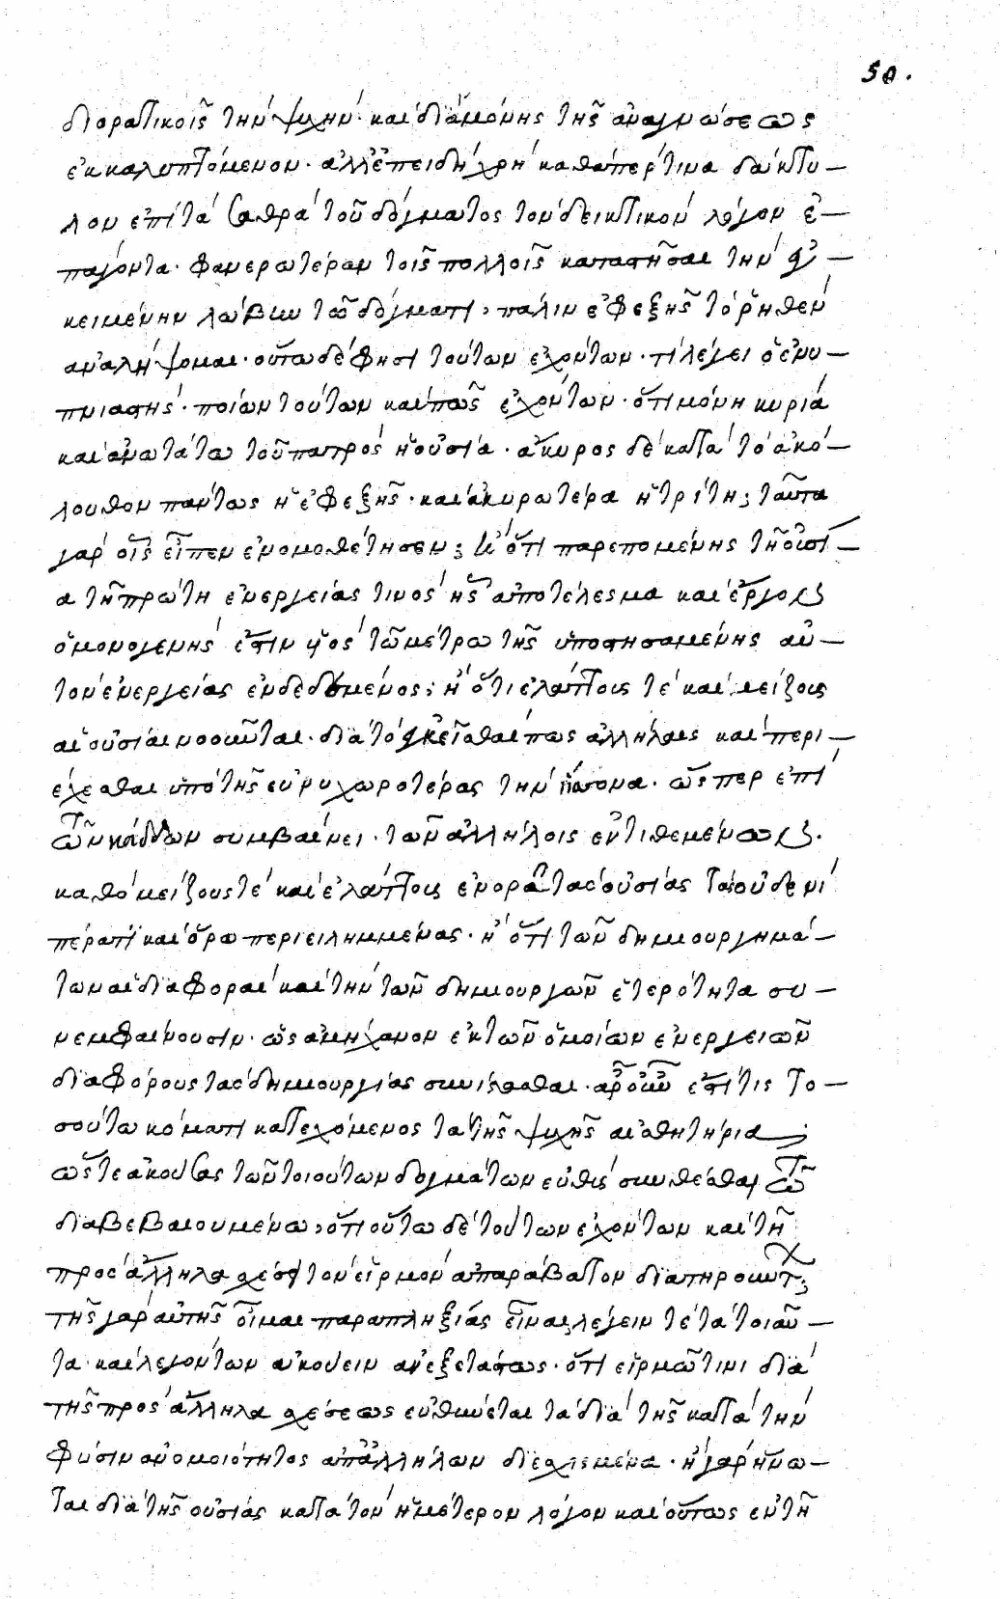 50.
διορατικοῖς τὴν ψυχὴν καὶ διὰ μόνης τῆς ἀναγνώσεως
ἐκκαλυπτόμενον· ἀλλ' ἐπειδὴ χρὴ καθάπερ τινα δάκτυ–
λον ἐπὶ τὰ σαθρὰ τοῦ δόγματος τὸν δεικτικὸν λόγον ἐ–
πάγοντα· φανερωτέραν τοῖς πολλοῖς καταστῆσαι τὴν ἐγ–
κειμένην λώβην τῶ δόγματι, πάλιν ἐφεξῆς τὸ ῥηθὲν
ἀναλήψομαι· οὕτω δέ φησι τούτων ἐχόντων· τί λέγει ὁ ἐνυ–
πνιαστής· ποίων τούτων καὶ πῶς ἐχόντων· ὅτι μόνη κυρία
καὶ ἀνωτάτω τοῦ πατρὸς ἡ οὐσία· ἄκυρος δὲ κατὰ τὸ ἀκό–
λουθον πάντως ἡ ἐφεξῆς· καὶ ἀκυρωτέρα ἡ τρίτη; ταῦτα
γὰρ οἷς εἶπεν ἐνομοθέτησεν; ἢ ὅτι παρεπομένης τῆ οὐσί–
α τῆ πρώτη ἐνεργείας τινὸς ἧς ἀποτέλεσμα καὶ ἔργον
ὁ μονογενής ἐστιν θεὸς τῶ μέτρω τῆς ὑποστησαμένης αὐ–
τὸν ἐνεργείας ἐνδεδόμενος; ἢ ὅτι ἐλάττους τὲ καὶ μείζους
αἱ οὐσίαι νοοῦνται· διὰ τὸ ἐγκεῖσθαί πως ἀλλήλαις καὶ περι–
έχεσθαι ὑπὸ τῆς εὐρυχωροτέρας τὴν ἥττονα· ὥσπερ ἐπὶ
τῶν κάδδων συμβαίνει· τῶν ἀλλήλοις ἐντιθεμένων·
καθὸ μείζους τὲ καὶ ἐλάττους ἐνορᾶ τὰς οὐσίας τὰς οὐδενὶ
πέρατι καὶ ὅρω περιειλημμένας· ἢ ὅτι τῶν δημιουργημά–
των αἱ διαφοραὶ καὶ τὴν τῶν δημιουργῶν ἑτερότητα συ–
νεμφαίνουσιν· ὡς ἀμήχανον ἐκ τῶν ὁμοίων ἐνεργειῶν
διαφόρους τὰς δημιουργίας συνίστασθαι· ἆρ' οὖν ἐστί τις το–
σούτω κόματι κατεχόμενος τὰ τῆς ψυχῆς αἰσθητήρια
ὥστε ἀκούσας τῶν τοιούτων δογμάτων εὐθὺς συνθέσθαι τῶ
διαβεβαιουμένω, ὅτι οὕτω δὲ τούτων ἐχόντων καὶ τῆ
πρὸς ἄλληλα σχέσει τὸν εἱρμὸν ἀπαράβατον διατηρούντων;
τῆς γὰρ αὐτῆς οἶμαι παραπληξίας εἶναι, λέγειν τὲ τὰ τοιαῦ–
τα καὶ λεγόντων ἀκούειν ἀνεξετάστως· ὅτι εἱρμῶ τινι διὰ
τῆς πρὸς ἄλληλα σχέσεως εὐθύνεται τὰ διὰ τῆς κατὰ τὴν
φύσιν ἀνομοιότητος ἀπ' ἀλλήλων διεσχισμένα· ἢ γὰρ ἥνω–
ται διὰ τῆς οὐσίας κατὰ τὸν ἡμέτερον λόγον καὶ οὕτως ἐν τῆ